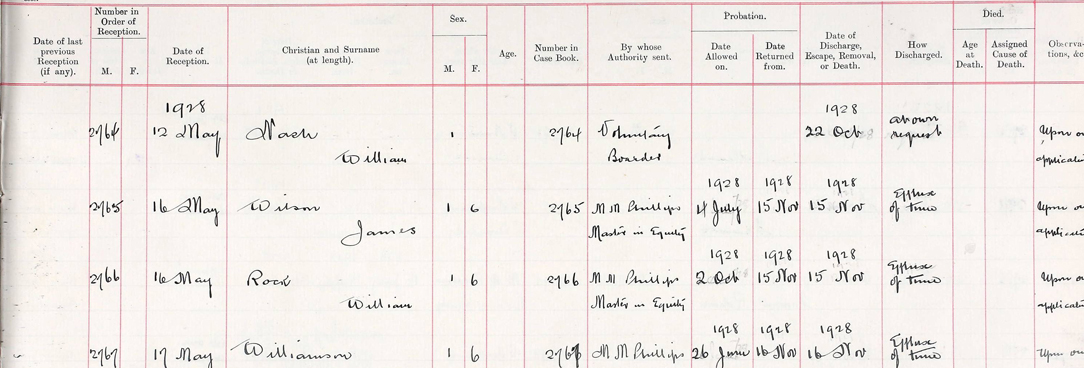 Number in
Order of
Reception.
Sex.
Probation.
Died.
Date of last
previous
Reception
(if any).
M. F.
Date of
Reception.
Christian and Surname
(at length).
M. F.
Age.
Number in
Case Book.
By whose
Authority sent.
Date
Allowed
on.
Date
Returned
from.
Date of
Discharge,
Escape, Removal,
or Death.
How
Discharged.
Age
at
Death.
Assigned
Cause of
Death.
Observa-
tions, &c
1928 1928 at own
2964 12 May Nash 1 2964 Voluntary 22 Oct request Upon
William Boarder applicati
1928 1928 1928 Efflux
2965 16 May Wilson 1 6 2965 M M Phillips 4 July 15 Nov 15 Nov of time Upon
James Master in Equity applicati
1928 1928 1928 Efflux
2966 16 May Rock 1 6 2966 M M Phillips 2 Oct 15 Nov 15 Nov of time Upon
William Master in Equity applicati
1928 1928 1928 Efflux
2967 17 May Williamson 1 6 2967 M M Phillips 26 June 16 Nov 16 Nov of time Upon